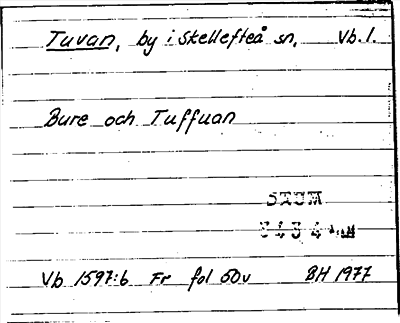 Tuvan, by i Skellefteå sn, Vb. l.
Bure och Tuffuan
Vb 1597:6 Fr fol 50v BH 1977